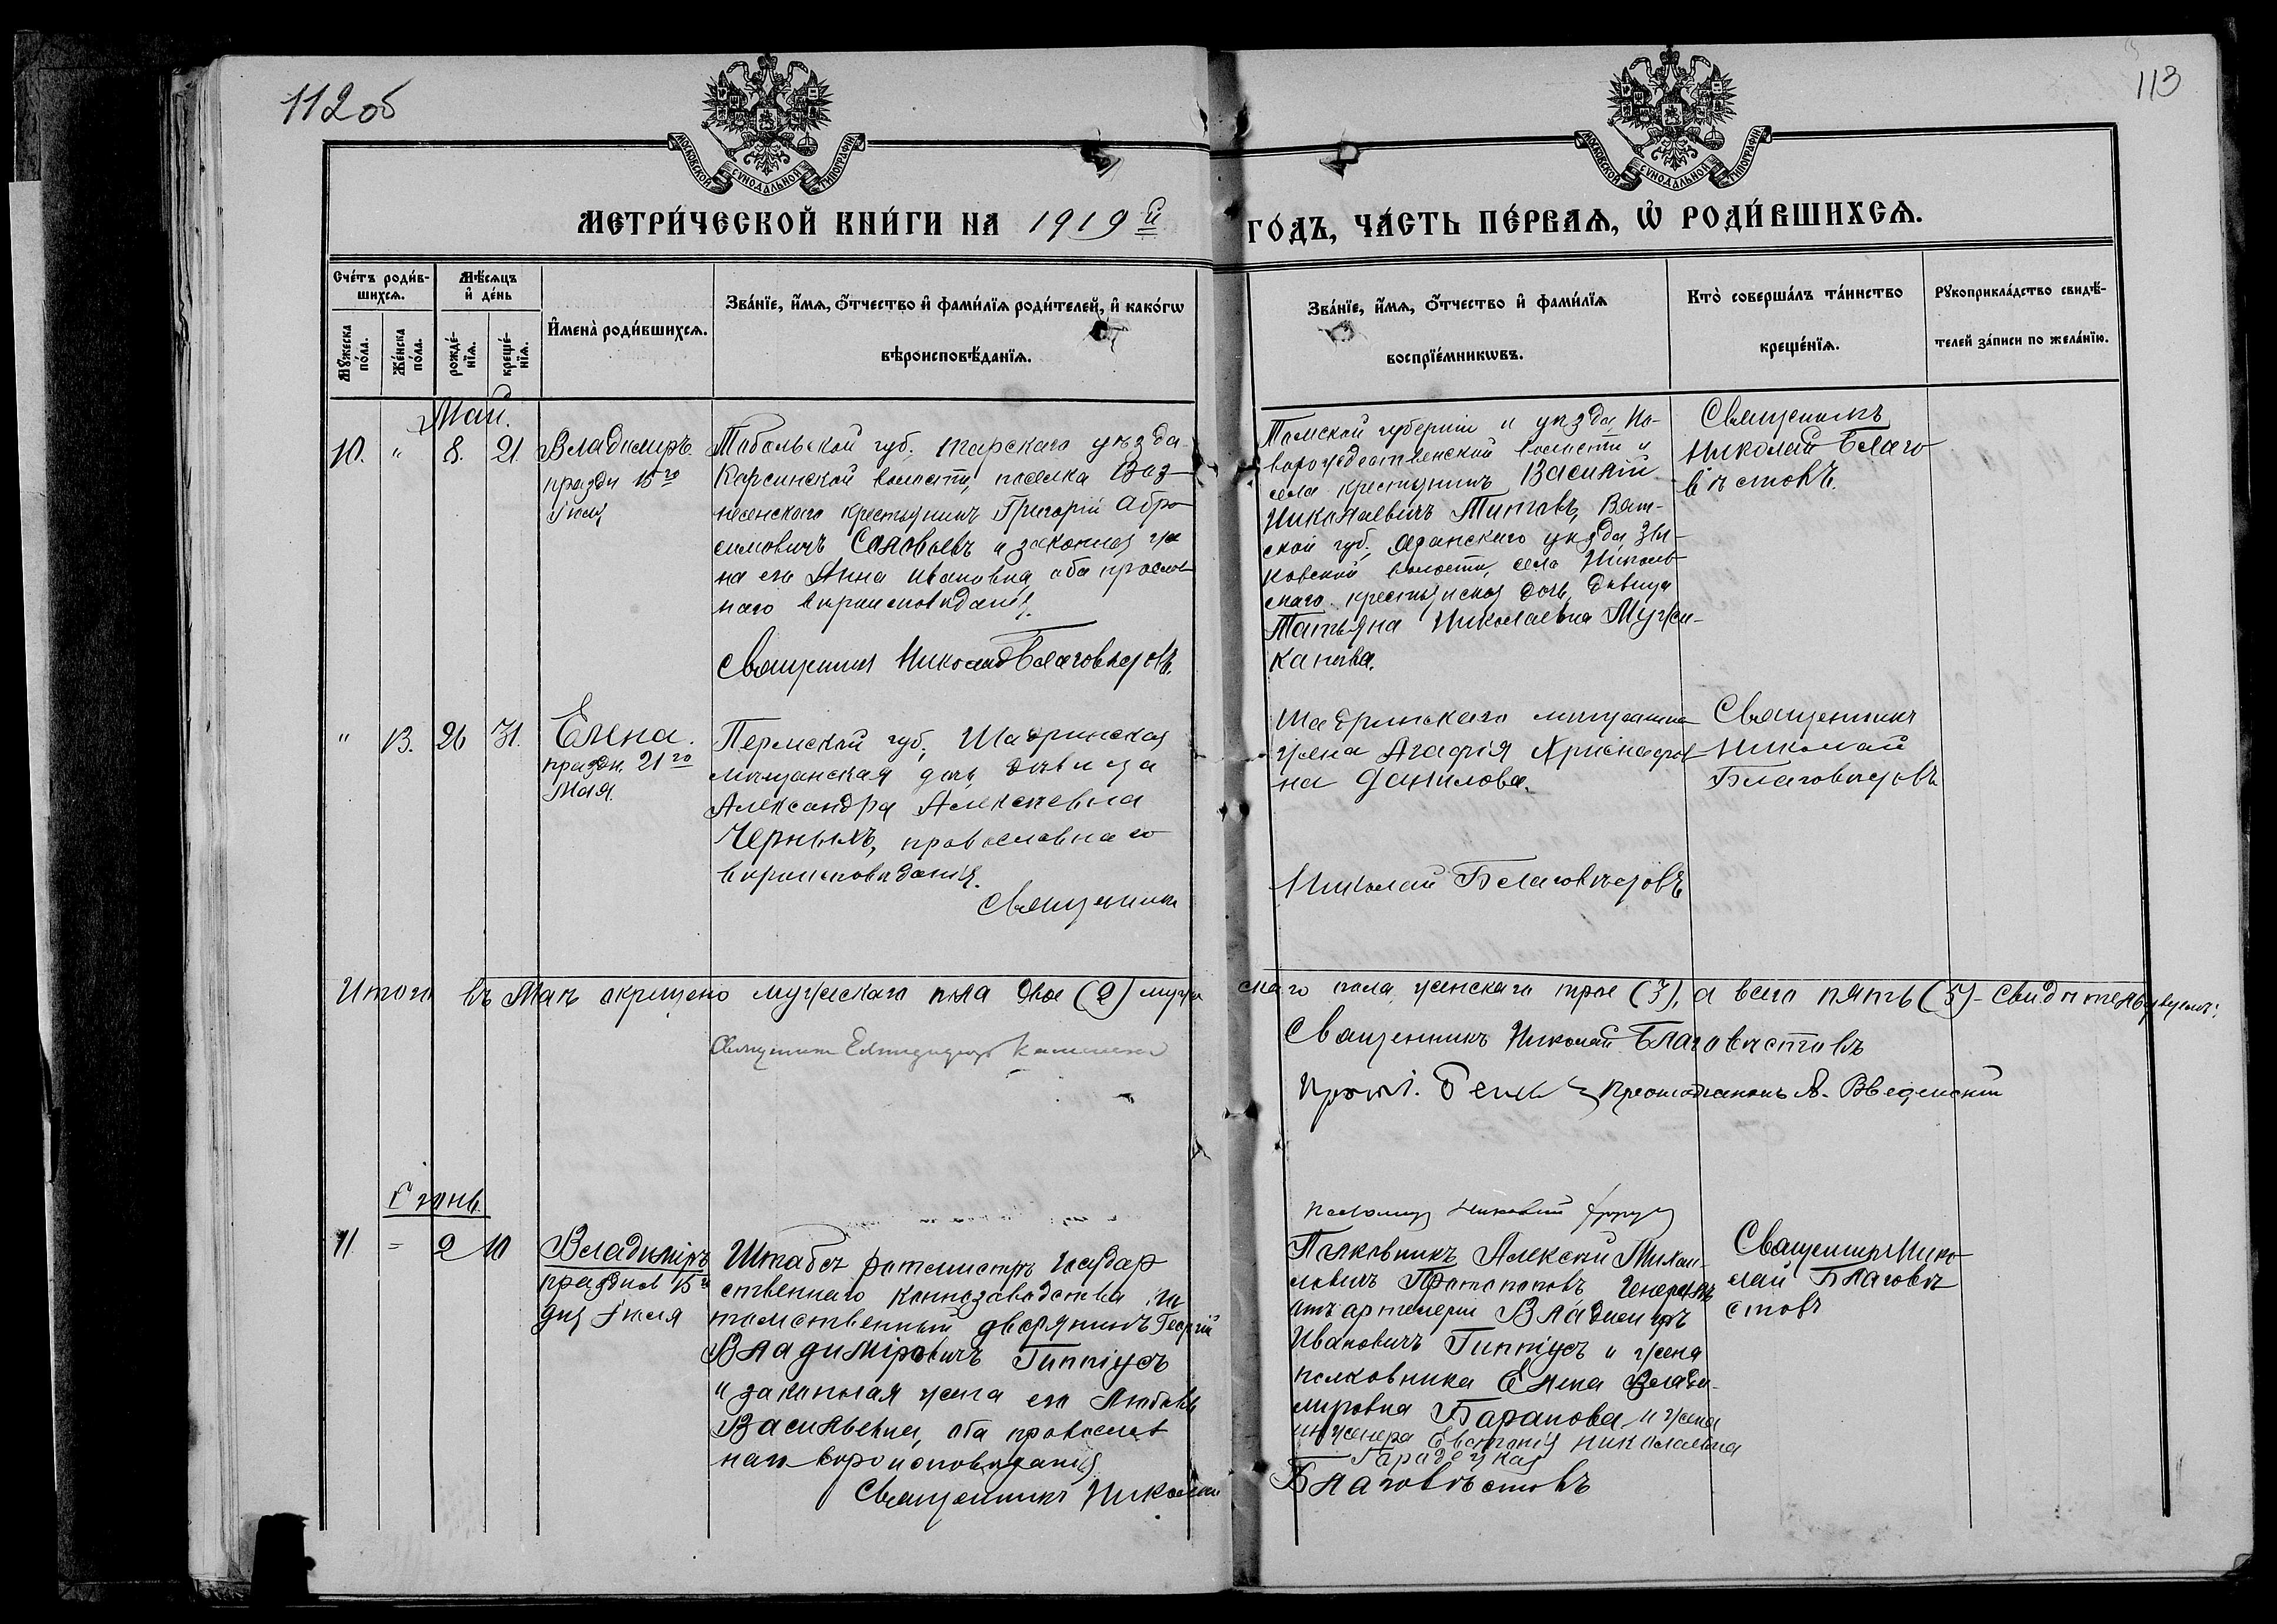 112 об
113
МОСКОВСКОЙ СѴНОДАЛЬНОЙ ТИПОГРАФІИ
МОСКОВСКОЙ СѴНОДАЛЬНОЙ ТИПОГРАФІИ
МЕТРИ́ЧЕСКОЙ КНИ́ГИ НА 1919й
ГО́ДЪ, ЧА́СТЬ ПЕ́РВАѦ, Ѡ҆ РОДИ́ВШИХСѦ.
Сче́тъ роди́в-
шихсѧ.
Мѣ́сѧцъ
и҆ де́нь
Мꙋ́жеска
по́ла.
Же́нска
по́ла.
рожде́-
нїѧ.
креще́-
нїѧ.
И҆мена̀ роди́вшихсѧ.
Зва́нїе, и҆́мѧ, ѻ҆́тчество и҆ фами́лїѧ роди́телей, и҆ како́гѡ
вѣроисповѣ́данїѧ.
Зва́нїе, и҆́мѧ, ѻ҆́тчество и҆ фами́лїѧ
воспрїе́мникѡвъ.
Кто̀ соверша́лъ та́инство
креще́нїѧ.
Рꙋкоприкла́дство свидѣ́-
телей за́писи по жела́нїю.
Май.
10. " 8. 21.
Владимиръ
праздн 15го
Іюля
Тобольской губ. Тарскаго уѣзда
Карсинской волости, поселка Воз-
несенскаго крестьянинъ Григорій Абро-
симовичъ Соловьевъ и законная же-
на его Анна Ивановна, оба православ-
наго вѣроисповѣданія.
Священникъ Николай Благовѣстовъ.
Томской губерніи и уѣзда, Но-
ворождественской волости и
села крестьянинъ Василій
Николаевичъ Титовъ, Вят-
ской губ.; уѣзда
ковской волости, села Николь-
скаго крестьянская дочь, дѣвица
Татьяна Николаевна Мужи-
канова.
Священникъ
Николай Благо
вѣстовъ.
" 13. 26 31.
Елена.
праздн. 21го
Мая.
Пермской губ., Шадринская
мѣщанская дочь дѣвица
Александра Алексѣевна
Черныхъ, православнаго
вѣроисповѣданія.
Священникъ
Шадринскаго мѣщанина
жена Агафія Христофоров
на Данилова.
Николай Благовѣстовъ
Священникъ
Николай
Благовѣстовъ
Итого въ Маѣ окрещено мужескаго пола двое (2) муже
скаго пола, женскаго трое (3), а всего пять (5) - свидѣтельствуемъ:
Священникъ
Священникъ Николай Благовѣстовъ
Прот. Протодіаконъ А. Введенскій
Іюнь.
11. = 2 10
Владиміръ
празднов 15го
дня Іюля
Штабсъ ротмистръ Государ
ственнаго коннозаводства, по
томственный дворянинъ Георгій
Владиміровичъ Гиппіусъ
и законная жена его Любовь
Васильевна, оба православ
наго вѣроисповѣданія
Священникъ Николай
Полковникъ Алексѣй Михаи-
ловичъ Протопоповъ Генералъ
отъ артиллеріи Владимиръ
Ивановичъ Гиппіусъ и жена
полковника Елена Влади-
мировна Баранова и жена
инженера Евгенія Николаевна
Городецкая
Благовѣстовъ
Священникъ Нико
лай Благовѣ
стовъ